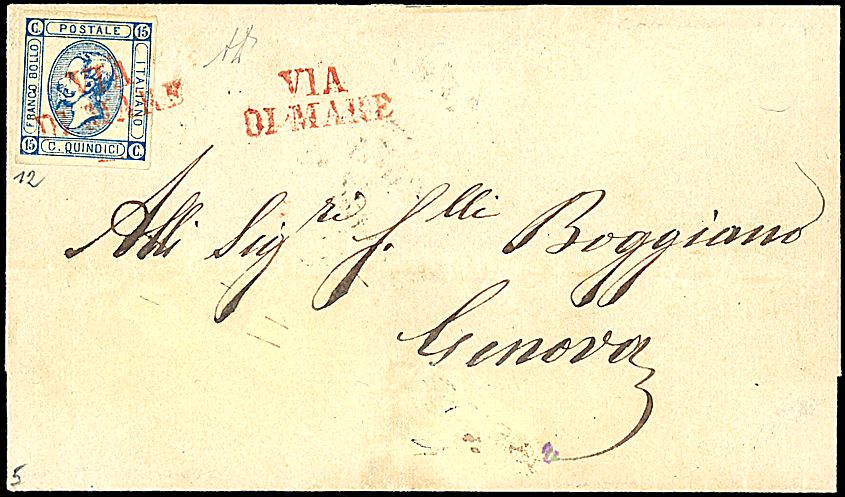 C. POSTALE 15
FRANCO BOLLO
ITALIANO
15 C. QUINDICI C.
VIA
DI MARE
VIA
DI MARE
12
Alli Sig.ri f.lli Boggiano
Genova
5